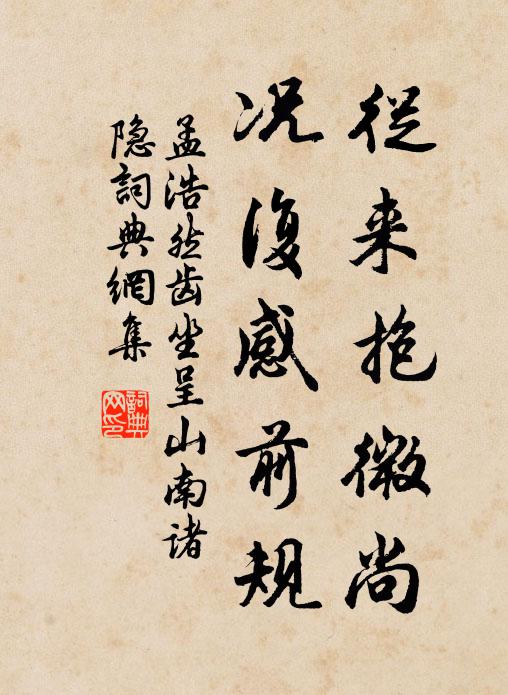 從来抱微尚
况復感前規
孟浩然齿坐呈山南诸
隐詞典網集
詞典网印